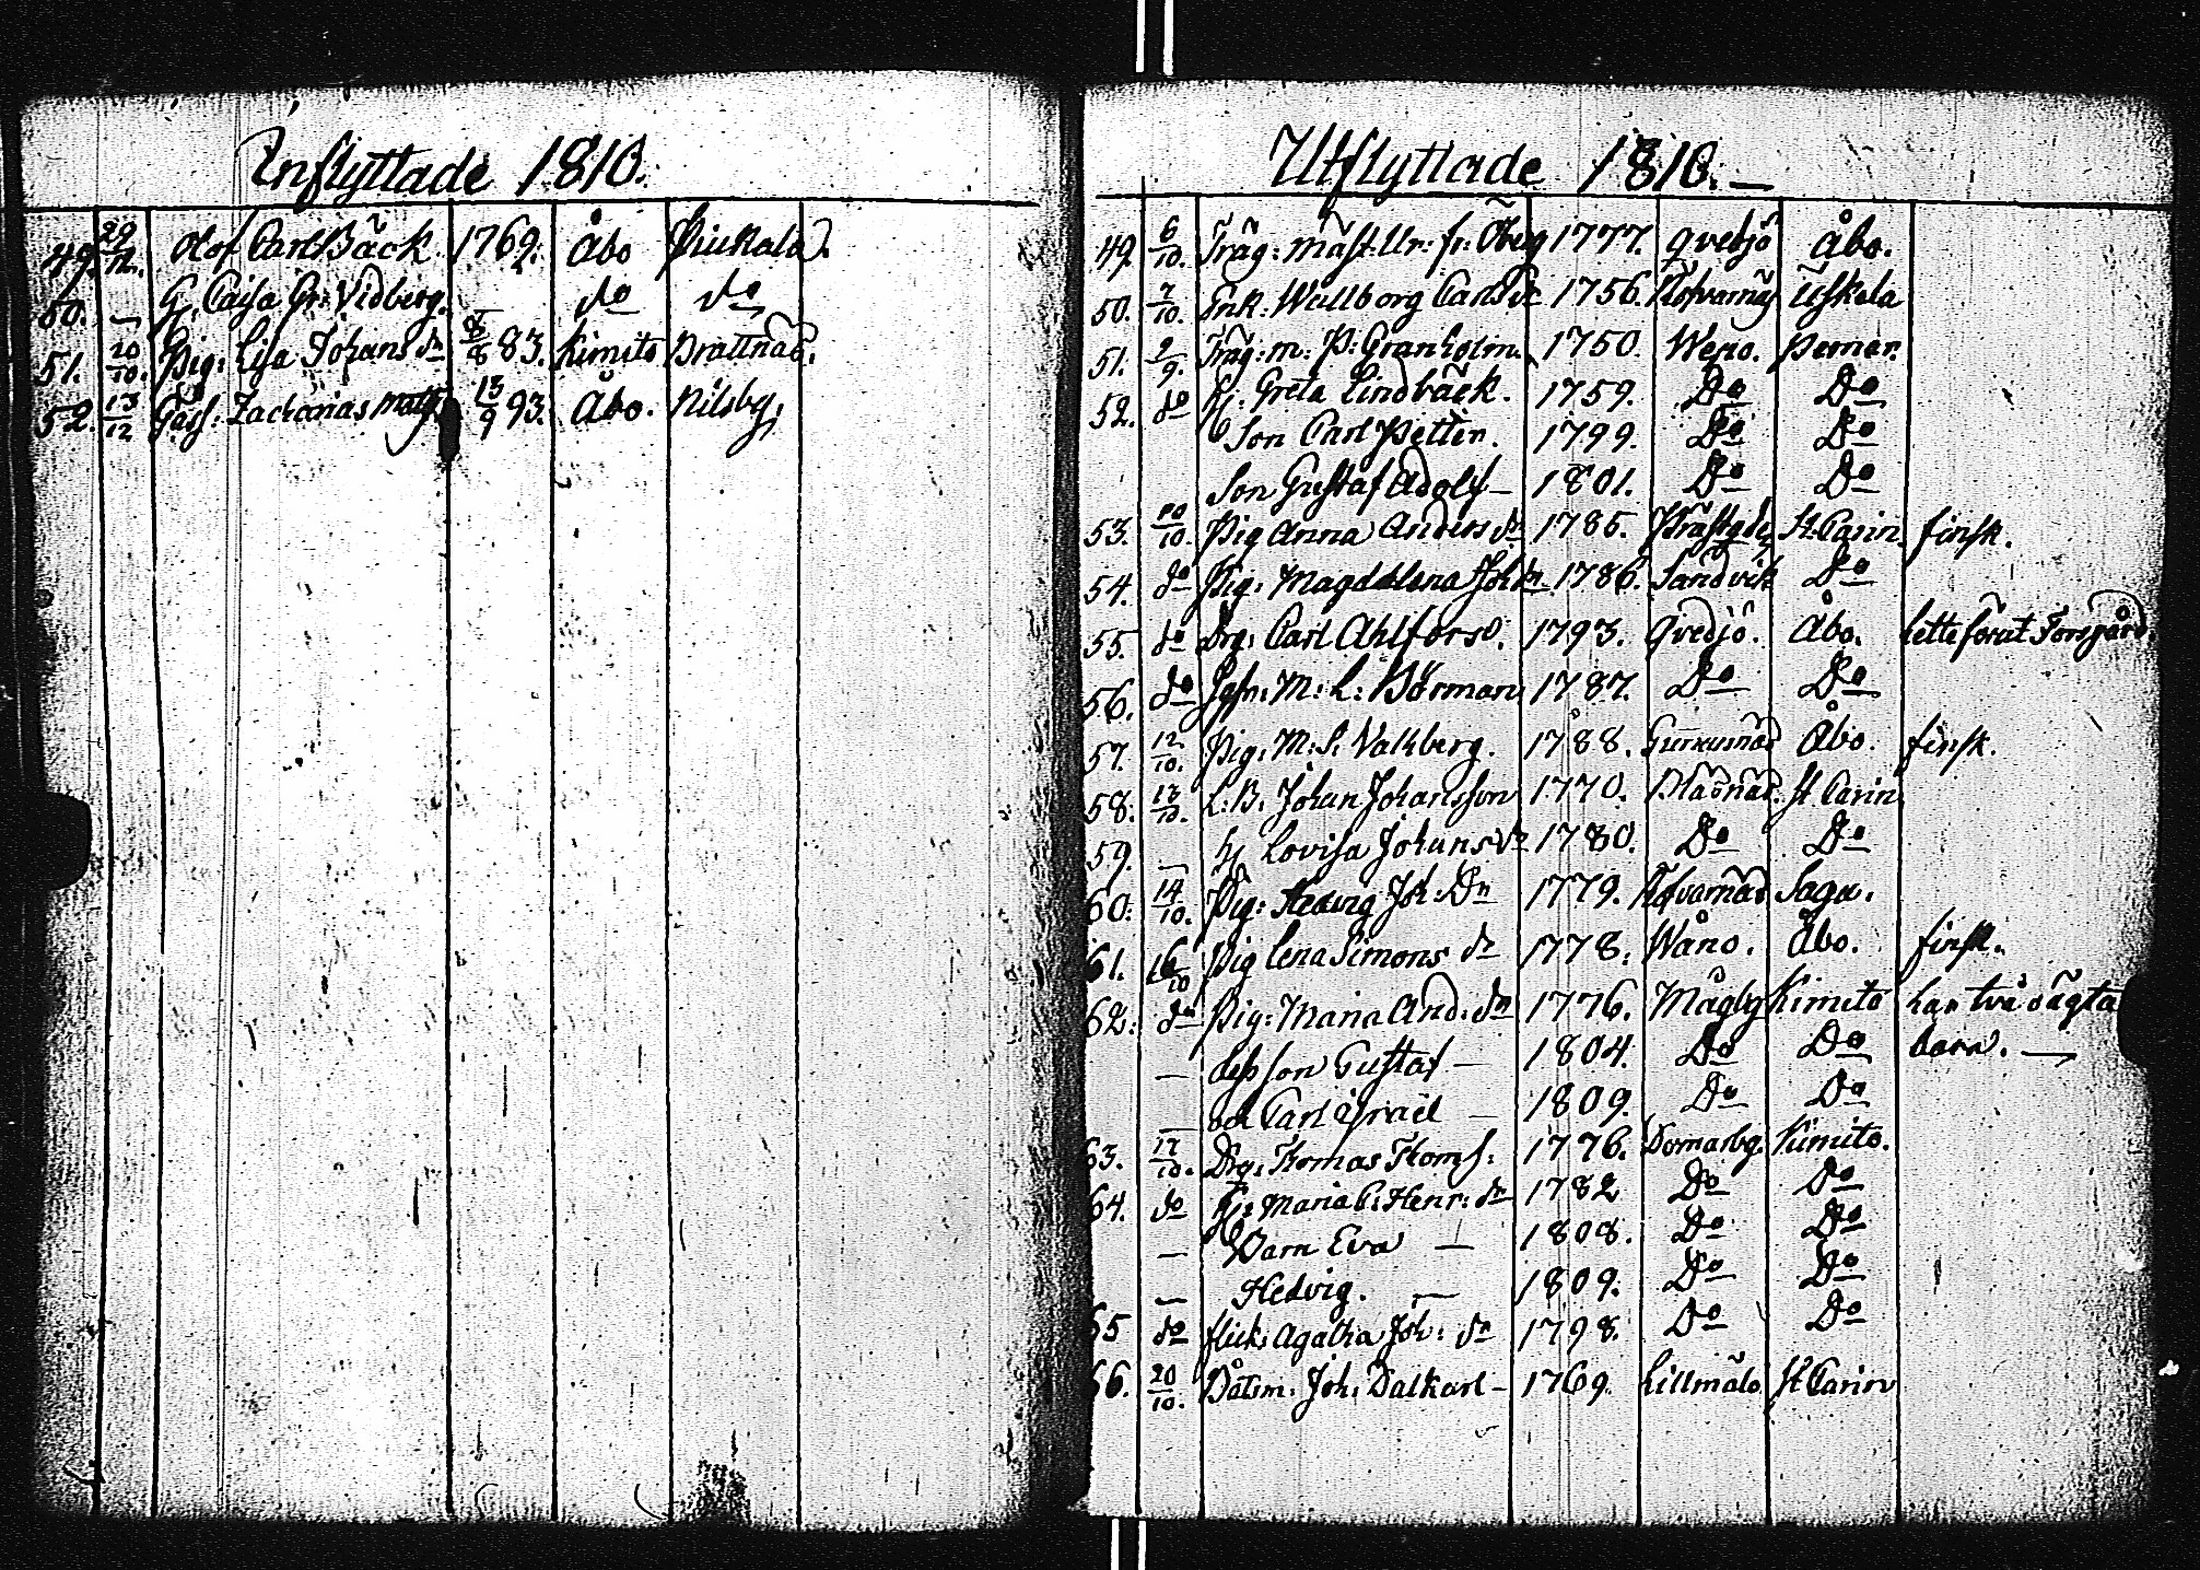 Inflyttade 1810.
49. 29/12. Olof Carl Bäck 1769. Åbo
50. — H. Caisa Gr: Vidberg. do do
51. 20/10. Pig: Lisa Johans dr 8/8 83. Kimito Brattnäs.
52. 13/12 Gåss: Zacharias Matts. 13/9 93. Åbo. Nilsby.
Utflyttade 1810. —
49. 6/10. Träg: mäst. Ur: fr: Öberg 1777. Qvedjö Åbo.
50. 7/10. Enk: Wallborg Carls dr 1756. Kofvarnäs Uskela
51. 9/9. Träg: m: P: Granholm. 1750. Weno. Pemar.
52. do H. Greta Lindbäck. 1759. Do Do
Son Carl Petter. 1799. Do Do
Son Gustaf Adolf — 1801. Do Do
53. 10/10. Pig Anna Anders dr 1785. Prästgd. St. Carin. finsk.
54. do Pig: Magdalena Joh dr 1786. Sandvik Do
55. do Drg: Carl Ahlfors. 1793. Qvedjö. Åbo. hette förut Torsgård.
56. do Jgfr: M: L: Börman 1787. Do Do
57. 12/10. Pig: M: S: Valkberg. 1788. Åbo. finsk.
58. 13/10. L: B: Johan Johansson 1770. St Carin
59. — H Lovisa Johans dr 1780. Do Do
60. 14/10. Pig: Hedvig Joh: Dr 1779. Kofvarnäs Sagu.
61. 16/10 Pig Lena Simons dr 1778. Wåno. Åbo. finsk.
62. do Pig: Maria And: dr 1776. Mågby Kimito har två oägta
— dess son Gustaf — 1804. Do Do barn. —
— od Carl Israel — 1809. Do Do
63. 17/10. Drg: Thomas Thoms: 1776. Domarby. Kimito.
64. do H: Maria C: Henr: dr 1782 Do Do
— Barn Eva — 1808. Do Do
— Hedvig. — 1809. Do Do
65 do flick: Agatha Joh: dr 1798. Do Do
66. 20/10. Båtsm: Joh: Dalkarl — 1769. Lillmälo. St Carin